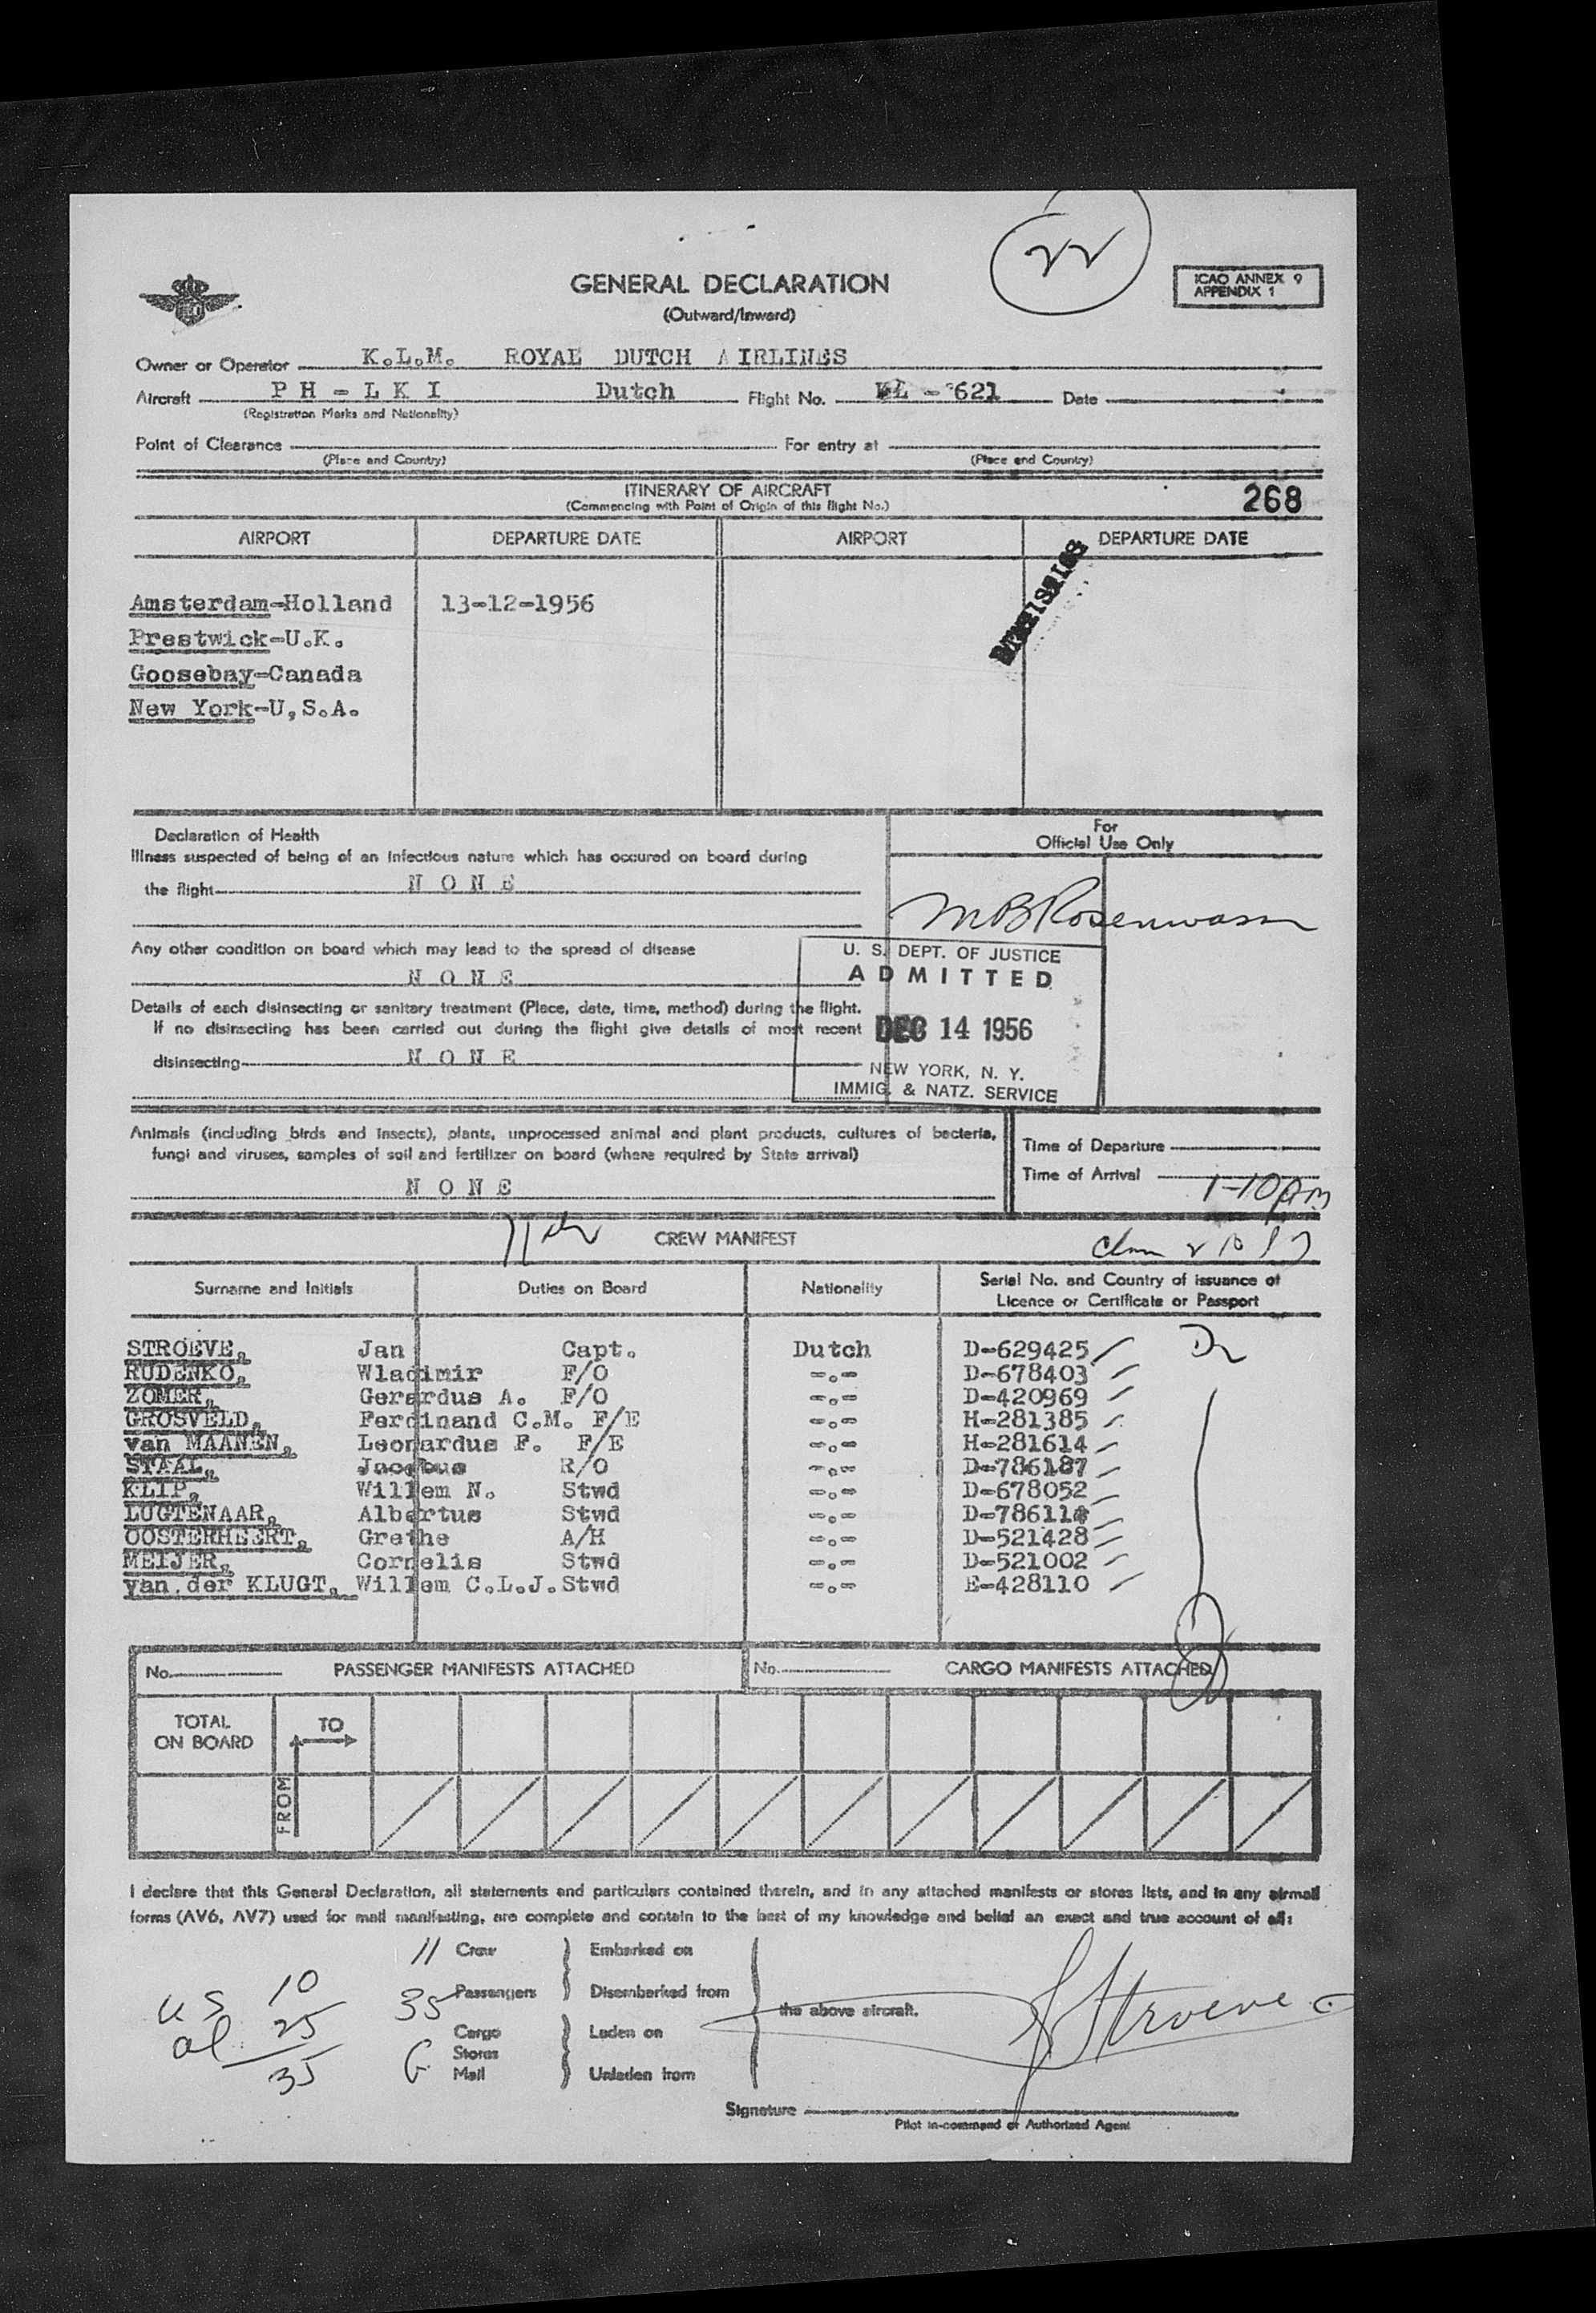 22
GENERAL DECLARATION
(Outward/Inward)
ICAO ANNEX 9
APPENDIX 1
Owner or Operator K.L.M. ROYAL DUTCH AIRLINES
Aircraft PH-LKI Dutch Flight No. KL - 621 Date
(Registration Marks and Nationality)
Point of Clearance For entry at
(Place and Country) (Place and Country)
ITINERARY OF AIRCRAFT
(Commencing with Point of Origin of this flight No.)
268
AIRPORT DEPARTURE DATE AIRPORT DEPARTURE DATE
Amsterdam-Holland 13-12-1956
Prestwick-U.K.
Goosebay-Canada
New York-U,S.A.
Declaration of Health
Illness suspected of being of an infectious nature which has occured on board during
the flight NONE
For
Official Use Only
MB Rosenwasser
Any other condition on board which may lead to the spread of disease
NONE
Details of each disinsecting or sanitary treatment (Place, date, time, method) during the flight.
If no disinsecting has been carried out during the flight give details of most recent
disinsecting NONE
U. S. DEPT. OF JUSTICE
ADMITTED
DEC 14 1956
NEW YORK, N. Y.
IMMIG. & NATZ. SERVICE
Animals (including birds and insects), plants, unprocessed animal and plant products, cultures of bacteria,
fungi and viruses, samples of soil and fertilizer on board (where required by State arrival)
NONE
Time of Departure
Time of Arrival 1-10pm
CREW MANIFEST
Surname and Initials Duties on Board Nationality Serial No. and Country of issuance of
Licence or Certificate or Passport
STROEVE, Jan Capt. Dutch D-629425
RUDENKO, Wladimir F/O -.- D-678403
ZOMER, Gerardus A. F/O -.- D-420969
GROSVELD, Ferdinand C.M. F/E -.- H-281385
van MAANEN, Leonardus F. F/E -.- H-281614
STAAL, Jacobus R/O -.- D-786187
KLIP, Willem N. Stwd -.- D-678052
LUGTENAAR, Albertus Stwd -.- D-786114
OOSTERHEERT, Grethe A/H -.- D-521428
MEIJER, Cornelis Stwd -.- D-521002
van der KLUGT, Willem C.L.J. Stwd -.- E-428110
No. PASSENGER MANIFESTS ATTACHED No. CARGO MANIFESTS ATTACHED
TOTAL
ON BOARD
TO
FROM
I declare that this General Declaration, all statements and particulars contained therein, and in any attached manifests or stores lists, and in any airmail
forms (AV6, AV7) used for mail manifesting, are complete and contain to the best of my knowledge and belief an exact and true account of all:
11 Crew Embarked on
35 Passengers Disembarked from
the above aircraft.
Cargo Laden on
Stores
Mail Unladen from
US 10
al. 25
35
JStroeve
Signature
Pilot in-command or Authorized Agent